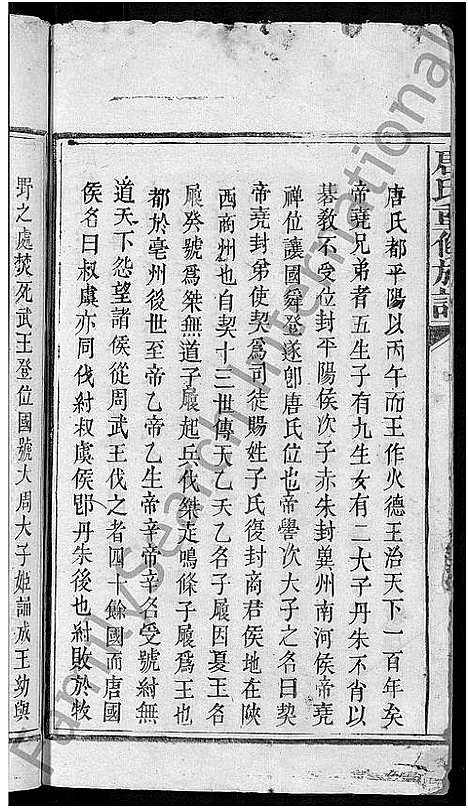 唐氏重修族譜
唐氏都平陽以丙午而王作火德王治天下一百年矣
帝堯兄弟者五生子有九生女有二大子丹朱不肖以
棊教不受位封平陽侯次子赤朱封兾州南河侯帝堯
禅位讓國舜登遂卽唐氏位也帝嚳次大子之名曰契
帝堯封弟使契爲司徒賜姓子氏復封商君侯地在陝
西商州也自契十三世傳天乙天乙名子履因夏王名
履癸號爲桀無道子履起兵伐桀走鳴條子履爲王也
都於亳州後世至帝乙帝乙生帝辛帝辛名受號紂無
道天下怨望諸侯從周武王伐之者四十餘國而唐國
侯名曰叔虞亦同伐紂叔虞侯卽丹朱後也紂敗於牧
野之處焚死武王登位國號大周大子姬誦成王幼與
FamilySearch International